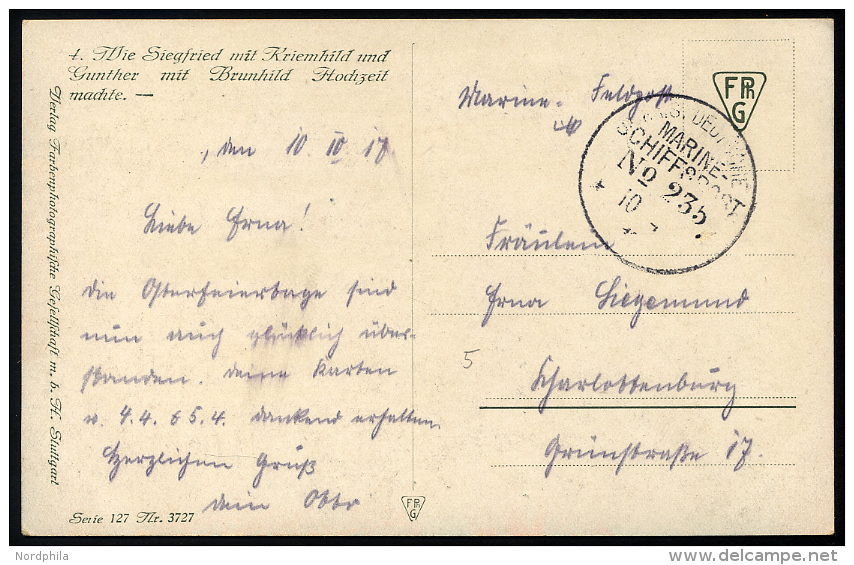 4. Wie Siegfried mit Kriemhild und
Gunther mit Brunhild Hochzeit
machte. —
Verlag Farbenphotographische Gesellschaft m. b. H. Stuttgart
, den 10. IV 17
Liebe Erna!
die Osterfeiertage sind
nun auch glücklich über-
standen. deine Karten
v. 4.4. & 5.4. dankend erhalten.
Herzlichen Gruß
dein Otto
Serie 127 Nr. 3727
FPh
G
FPh
G
Marine- Feldpost
MARINE-
SCHIFFSPOST
No 235
10
Fräulein
Erna Siegemund
5
Charlottenburg
Grünstraße 17.
Nordphila
http://www.delcampe.net